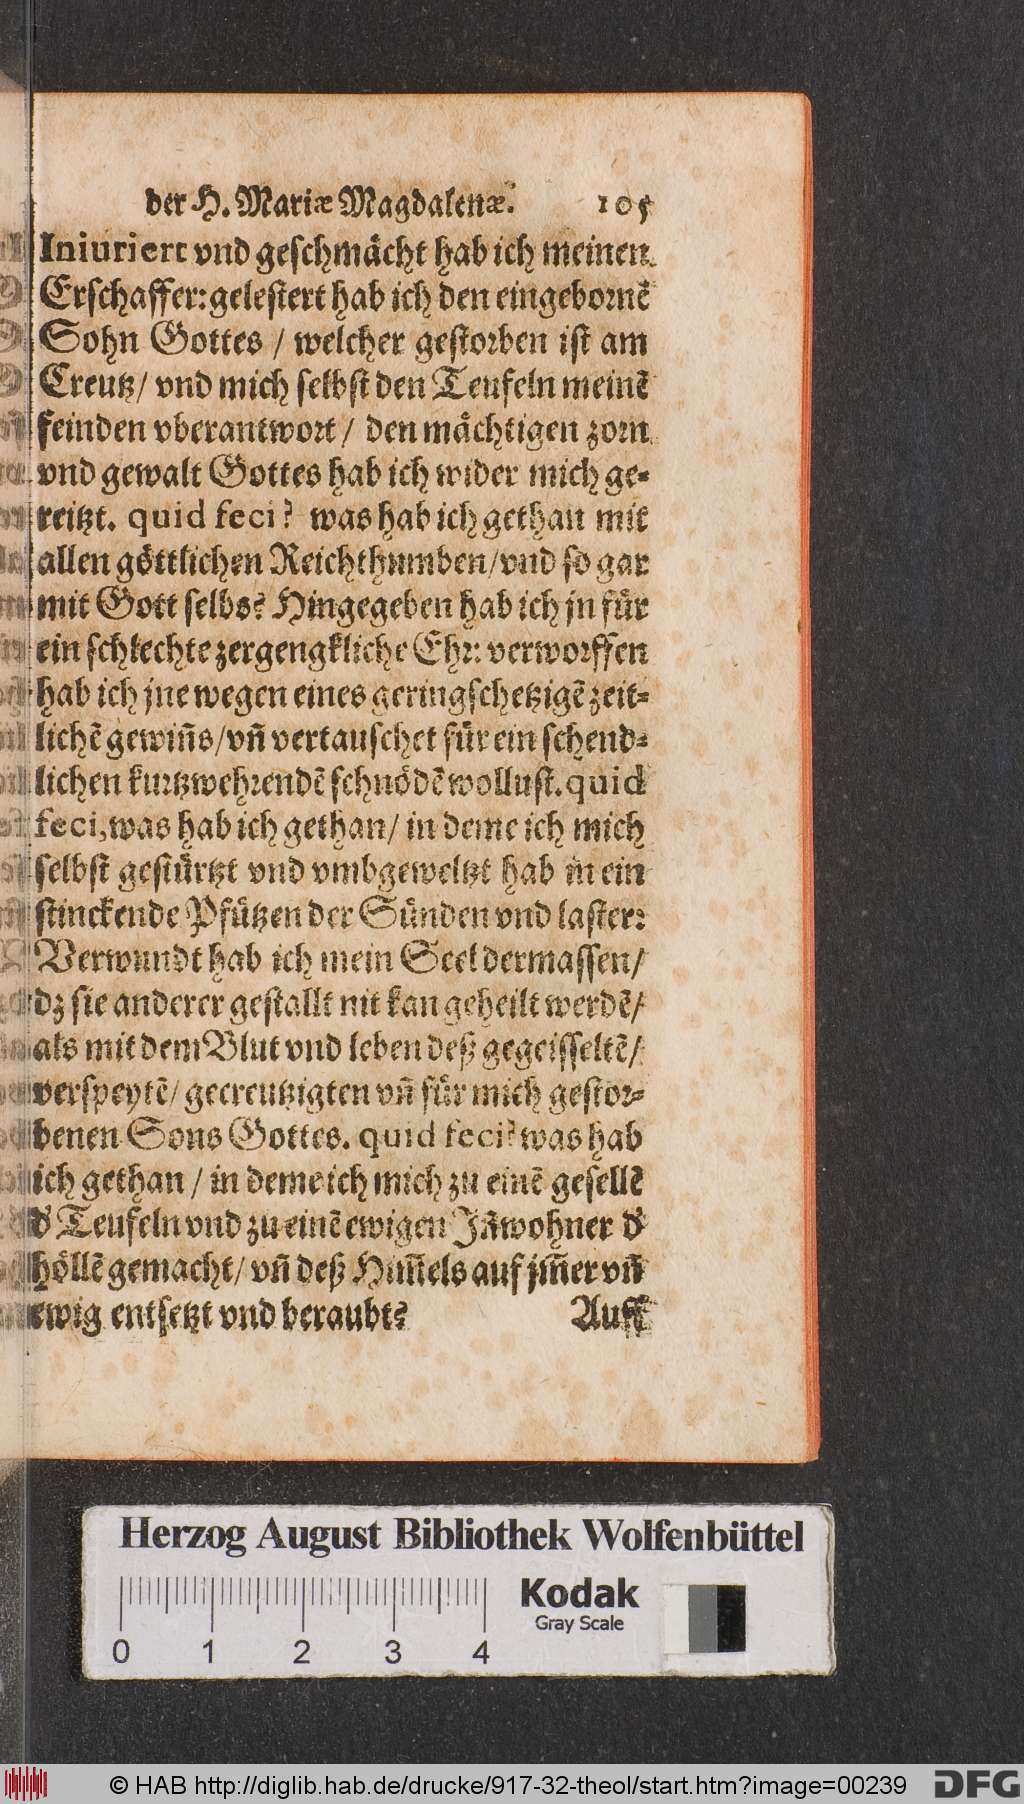 der H. Mariæ Magdalenæ. 105
Iniuriert vnd geschmächt hab ich meinen
Erschaffer: gelestert hab ich den eingebornẽ
Sohn Gottes / welcher gestorben ist am
Creutz / vnd mich selbst den Teufeln meinẽ
feinden vberantwort / den mächtigen zorn
vnd gewalt Gottes hab ich wider mich ge-
reitzt. quid feci? was hab ich gethan mit
allen göttlichen Reichthumben / vnd so gar
mit Gott selbs? Hingegeben hab ich jn für
ein schlechte zergengkliche Ehr: verworffen
hab ich jne wegen eines geringschetzigẽ zeit-
lichẽ gewiñs / vñ vertauschet für ein schend-
lichen kurtzwehrendẽ schnödẽ wollust. quid
feci, was hab ich gethan / in deme ich mich
selbst gestürtzt vnd vmbgeweltzt hab in ein
stinckende Pfützen der Sünden vnd laster:
Verwundt hab ich mein Seel dermassen /
dz sie anderer gestallt nit kan geheilt werdẽ /
als mit dem Blut vnd leben deß gegeisseltẽ /
verspeytẽ / gecreutzigten vñ für mich gestor-
benen Sons Gottes. quid feci? was hab
ich gethan / in deme ich mich zu einẽ gesellẽ
d' Teufeln vnd zu einẽ ewigen Jñwohner d'
höllẽ gemacht / vñ deß Him̃els auf jm̃er vñ
ewig entsetzt vnd beraubt? Auff
Herzog August Bibliothek Wolfenbüttel
Kodak
Gray Scale
0 1 2 3 4
© HAB http://diglib.hab.de/drucke/917-32-theol/start.htm?image=00239
DFG